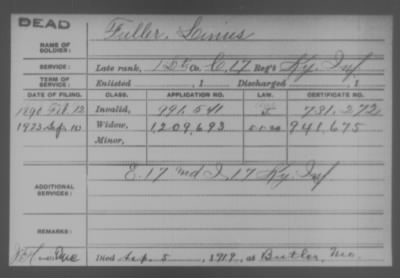 DEAD
Fuller,
NAME OF SOLDIER:
SERVICE: Late rank, Co. C, 17 Reg't Ky. Inf
TERM OF SERVICE: Enlisted 1 Discharged 1
DATE OF FILING. CLASS. APPLICATION NO. LAW. CERTIFICATE NO.
1890 Feb. 12 Invalid, 991,541 731,272
10 Widow, 1,209,693 941,675
Minor,
ADDITIONAL SERVICES: E. 17 17 Ky Inf
REMARKS:
Died 5, 1919, at Butler, Mo.